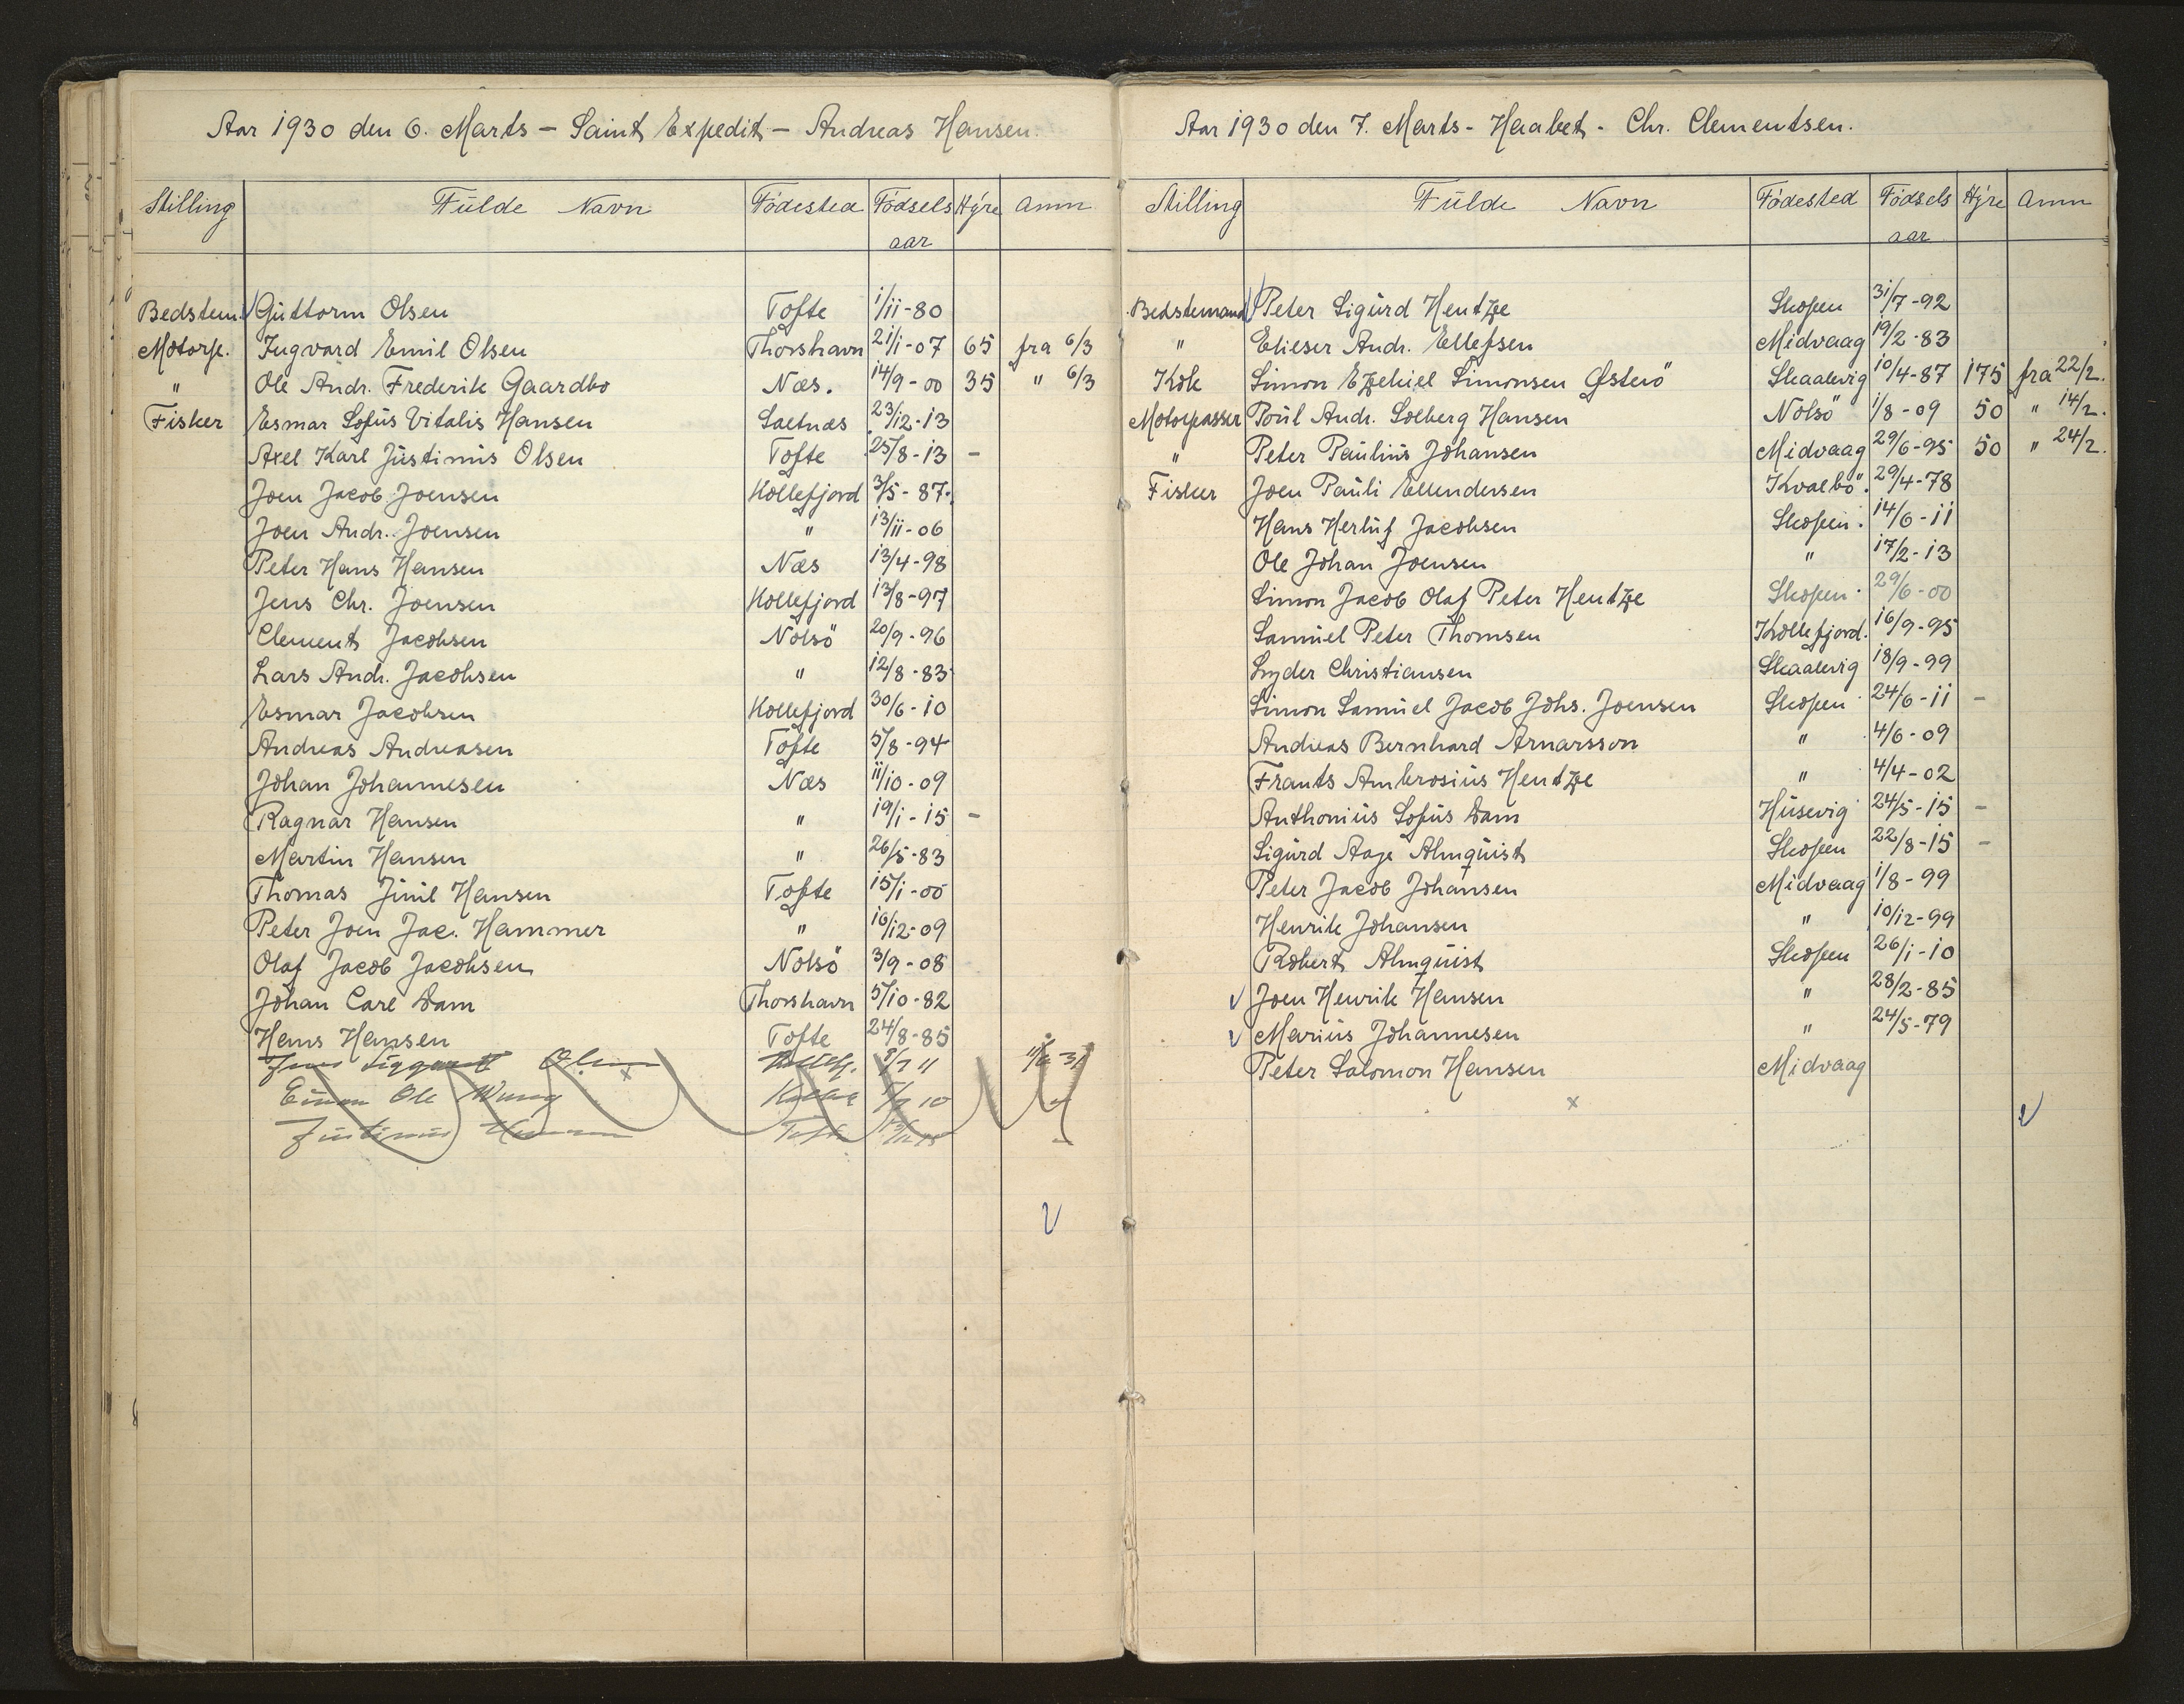 Aar 1930 den 6. Marts - Saint Expedit - Andreas Hansen.
Stilling Fulde Navn Födested Födsels aar Hyre Anm
Bedstem. Guttorm Olsen Tofte 1/11-80
Motorp. Ingvard Emil Olsen Thorshavn 21/1-07 65 fra 6/3
" Ole Andr. Frederik Gaardbo Næs. 14/9-00 35 " 6/3
Fisker Esmar Sofus Vitalis Hansen Saltnæs 23/12-13
Axel Karl Justinus Olsen Tofte 25/8-13 -
Joen Jacob Joensen Kollefjord 3/5-87.
Joen Andr. Joensen " 13/11-06
Peter Hans Hansen Næs 13/4-98
Jens Chr. Joensen Kollefjord 13/8-97
Clement Jacobsen Nolsö 20/9-96
Lars Andr. Jacobsen " 12/8-83
Esmar Jacobsen Kollefjord 30/6-10
Andreas Andreasen Tofte 5/8-94
Johan Johannesen Næs 11/10-09
Ragnar Hansen " 19/1-15 -
Martin Hansen " 26/5-83
Thomas Juul Hansen Tofte 15/1-00
Peter Joen Jac. Hammer " 16/12-09
Olaf Jacob Jacobsen Nolsö 3/9-08
Johan Carl Dam Thorshavn 5/10-82
Hans Hansen Tofte 24/8-85
Olsen
Ole
Justinus Hansen
Aar 1930 den 7. Marts - Haabet - Chr. Clementsen.
Stilling Fulde Navn Födested Födsels aar Hyre Anm
Bedstemand Peter Sigurd Hentze Skopen 31/7-92
" Elieser Andr. Ellefsen Midvaag 19/2-83
Kok Simon Ezekiel Simonsen Østerö Skaalevig 10/4-87 175 fra 22/2.
Motorpasser Poul Andr. Solberg Hansen Nolsö 1/8-09 50 " 14/2.
" Peter Paulius Johansen Midvaag 29/6-95 50 " 24/2.
Fisker Joen Pauli Ellendersen Kvalbö. 29/4-78
Hans Herluf Jacobsen Skopen. 14/6-11
Ole Johan Joensen " 17/2-13
Simon Jacob Olaf Peter Hentze Skopen. 29/6-00
Samuel Peter Thomsen Kollefjord. 16/9-95
Lyder Christiansen Skaalevig 18/9-99
Simon Samuel Jacob Johs. Joensen Skopen 24/6-11 -
Andreas Bernhard Arnarsson " 4/6-09
Frants Ambrosius Hentze " 4/4-02
Anthonius Sofus Dam Husevig 24/5-15 -
Sigurd Aage Almquist Skopen 22/8-15 -
Peter Jacob Johansen Midvaag 1/8-99
Henrik Johansen " 10/12-99
Robert Almquist Skopen 26/1-10
Joen Henrik Hansen " 28/2-85
Marius Johannesen " 24/5-79
Peter Salomon Hansen Midvaag